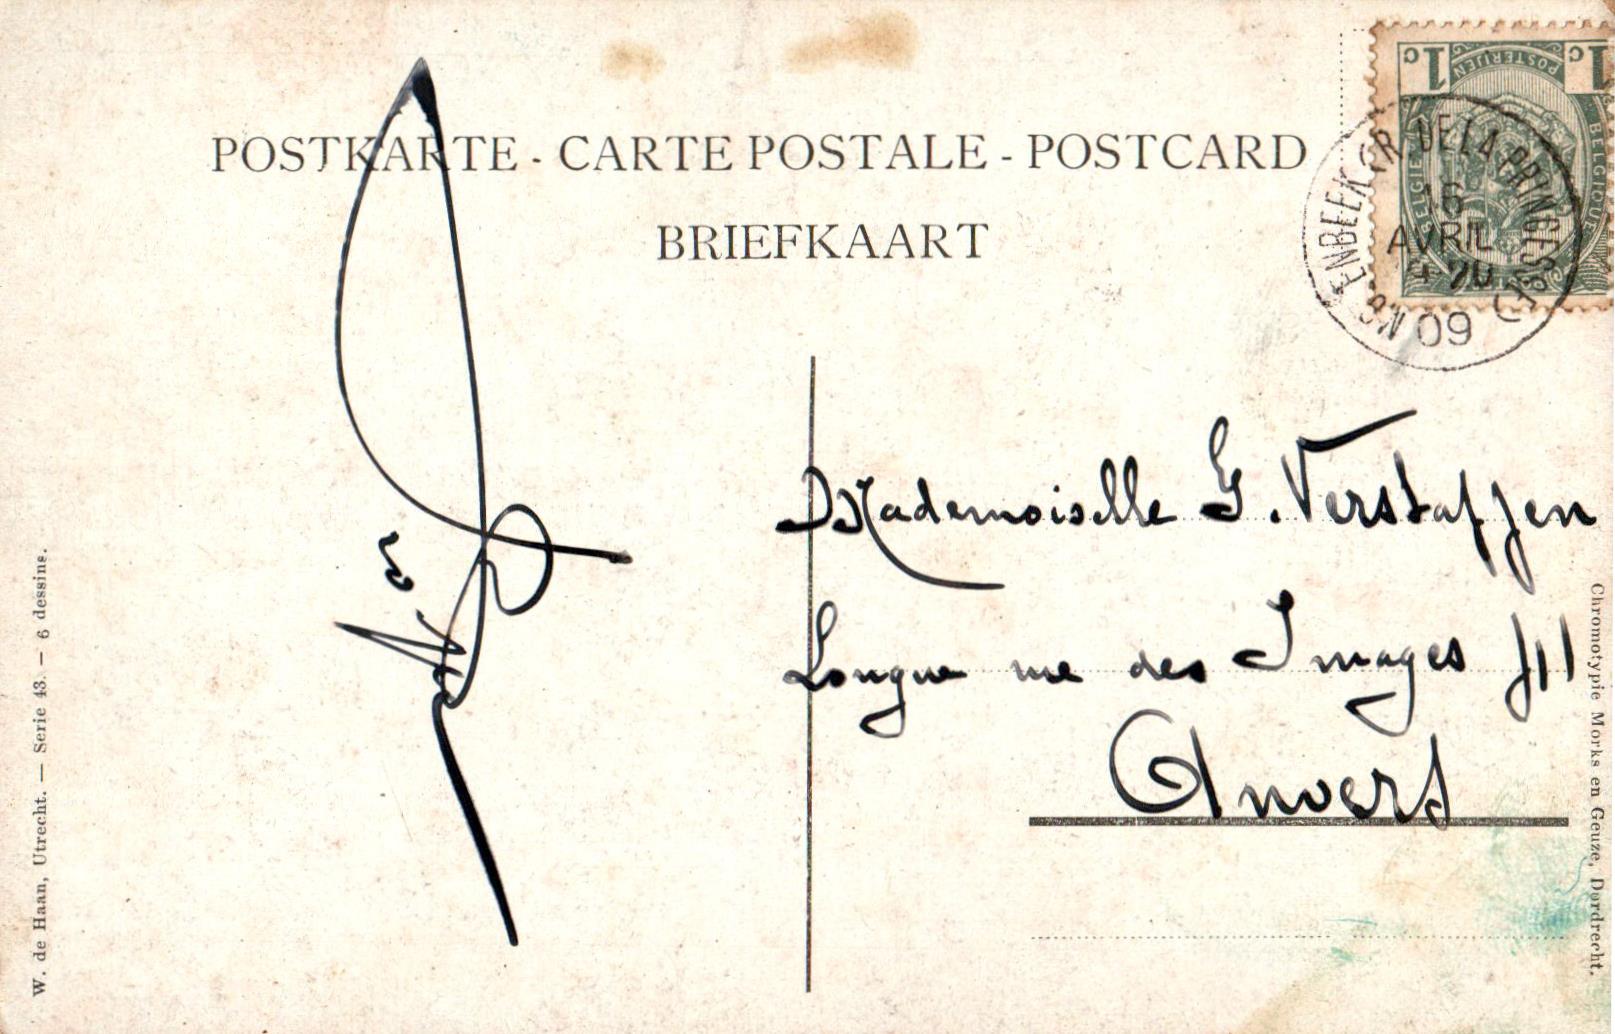 POSTKARTE - CARTE POSTALE - POSTCARD
BRIEFKAART
1c POSTERIJEN 1c
BELGIE BELGIQUE
(R. DE LA PRINCESSE)
16
AVRIL
09
Mademoiselle G. Verstaffen
Longue rue des Images
Anvers
W. de Haan, Utrecht. — Serie 43. — 6 dessins.
Chromotypie Morks en Geuze, Dordrecht.